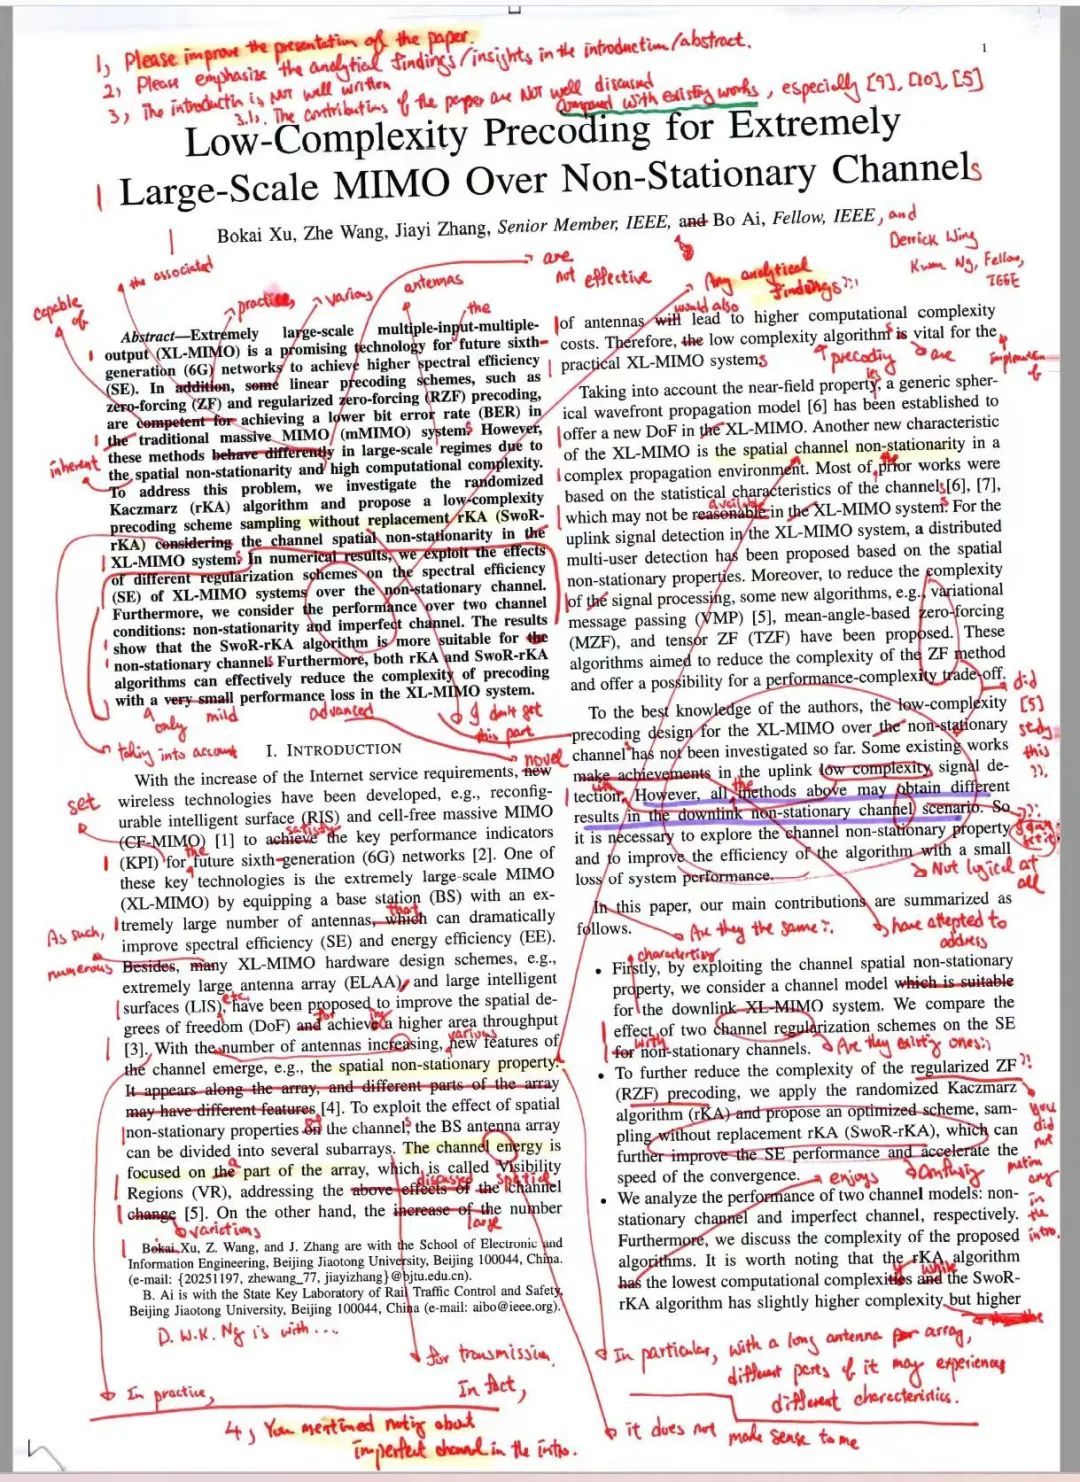 1
1, Please improve the presentation of the paper.
2, Please emphasize the analytical findings/insights in the introduction/abstract.
3, The introductin is NOT well written
3.1). The contributions of the paper are NOT well discussed
compared with existing works, especially [9], [10], [5]
Low-Complexity Precoding for Extremely
Large-Scale MIMO Over Non-Stationary Channels
Bokai Xu, Zhe Wang, Jiayi Zhang, Senior Member, IEEE, and Bo Ai, Fellow, IEEE, and
Derrick Wing
Kwan Ng, Fellow,
IEEE
the associated
capable
of
practice,
various
antennas
the
are
not effective
Any analytical
findings?
Abstract—Extremely large-scale multiple-input-multiple-
output (XL-MIMO) is a promising technology for future sixth-
generation (6G) networks to achieve higher spectral efficiency
(SE). In addition, some linear precoding schemes, such as
zero-forcing (ZF) and regularized zero-forcing (RZF) precoding,
are competent for achieving a lower bit error rate (BER) in
the traditional massive MIMO (mMIMO) systems However,
these methods behave differently in large-scale regimes due to
inherent
the spatial non-stationarity and high computational complexity.
To address this problem, we investigate the randomized
Kaczmarz (rKA) algorithm and propose a low-complexity
precoding scheme sampling without replacement rKA (SwoR-
rKA) considering the channel spatial non-stationarity in the
XL-MIMO systems In numerical results, we exploit the effects
of different regularization schemes on the spectral efficiency
(SE) of XL-MIMO systems over the non-stationary channel.
Furthermore, we consider the performance over two channel
conditions: non-stationarity and imperfect channel. The results
show that the SwoR-rKA algorithm is more suitable for the
non-stationary channels Furthermore, both rKA and SwoR-rKA
algorithms can effectively reduce the complexity of precoding
with a very small performance loss in the XL-MIMO system.
only mild
advanced
I don't get
this part
taking into account
novel
I. INTRODUCTION
With the increase of the Internet service requirements, new
set
wireless technologies have been developed, e.g., reconfig-
urable intelligent surface (RIS) and cell-free massive MIMO
satisfy
(CF-MIMO) [1] to achieve the key performance indicators
the
(KPI) for future sixth-generation (6G) networks [2]. One of
these key technologies is the extremely large-scale MIMO
(XL-MIMO) by equipping a base station (BS) with an ex-
that
As such,
tremely large number of antennas, which can dramatically
improve spectral efficiency (SE) and energy efficiency (EE).
numerous
Besides, many XL-MIMO hardware design schemes, e.g.,
extremely large antenna array (ELAA), and large intelligent
etc,
surfaces (LIS), have been proposed to improve the spatial de-
for ing
grees of freedom (DoF) and achieve a higher area throughput
various
[3]. With the number of antennas increasing, new features of
the channel emerge, e.g., the spatial non-stationary property.
It appears along the array, and different parts of the array
may have different features [4]. To exploit the effect of spatial
non-stationary properties on the channel, the BS antenna array
can be divided into several subarrays. The channel energy is
focused on the part of the array, which is called Visibility
discussed spatial
Regions (VR), addressing the above effects of the channel
change [5]. On the other hand, the increase of the number
variations
large
Bokai Xu, Z. Wang, and J. Zhang are with the School of Electronic and
Information Engineering, Beijing Jiaotong University, Beijing 100044, China.
(e-mail: {20251197, zhewang_77, jiayizhang}@bjtu.edu.cn).
B. Ai is with the State Key Laboratory of Rail Traffic Control and Safety,
Beijing Jiaotong University, Beijing 100044, China (e-mail: aibo@ieee.org).
D. W.K. Ng is with ....
for transmission.
In practice,
In fact,
4, You mentioned nothing about
imperfect channel in the intro.
would also
of antennas will lead to higher computational complexity
costs. Therefore, the low complexity algorithms is vital for the
practical XL-MIMO systems
precoding
are
Taking into account the near-field property, a generic spher-
ical wavefront propagation model [6] has been established to
offer a new DoF in the XL-MIMO. Another new characteristic
of the XL-MIMO is the spatial channel non-stationarity in a
complex propagation environment. Most of prior works were
the
based on the statistical characteristics of the channels [6], [7],
available
which may not be reasonable in the XL-MIMO systems For the
uplink signal detection in the XL-MIMO system, a distributed
multi-user detection has been proposed based on the spatial
non-stationary properties. Moreover, to reduce the complexity
of the signal processing, some new algorithms, e.g., variational
message passing (VMP) [5], mean-angle-based zero-forcing
(MZF), and tensor ZF (TZF) have been proposed. These
algorithms aimed to reduce the complexity of the ZF method
and offer a possibility for a performance-complexity trade-off.
did
[5]
study
this
??.
To the best knowledge of the authors, the low-complexity
precoding design for the XL-MIMO over the non-stationary
channels has not been investigated so far. Some existing works
make achievements in the uplink low complexity signal de-
the
tection. However, all methods above may obtain different
results in the downlink non-stationary channel scenario. So
it is necessary to explore the channel non-stationary property
and to improve the efficiency of the algorithm with a small
loss of system performance.
Not logical at
all
In this paper, our main contributions are summarized as
follows.
Are they the same?
have attepted to
address
characterizing
• Firstly, by exploiting the channel spatial non-stationary
property, we consider a channel model which is suitable
for the downlink XL-MIMO system. We compare the
effect of two channel regularization schemes on the SE
with
for non-stationary channels.
Are they existing ones?
• To further reduce the complexity of the regularized ZF
(RZF) precoding, we apply the randomized Kaczmarz
algorithm (rKA) and propose an optimized scheme, sam-
pling without replacement rKA (SwoR-rKA), which can
further improve the SE performance and accelerate the
speed of the convergence.
enjoys
Confusing
??
you
did
not
any
in
the
intro.
• We analyze the performance of two channel models: non-
stationary channel and imperfect channel, respectively.
Furthermore, we discuss the complexity of the proposed
algorithms. It is worth noting that the rKA algorithm
while
has the lowest computational complexities and the SwoR-
rKA algorithm has slightly higher complexity but higher
In particular, with a long antenna array,
different parts of it may experience
different characteristics.
it does not make sense to me